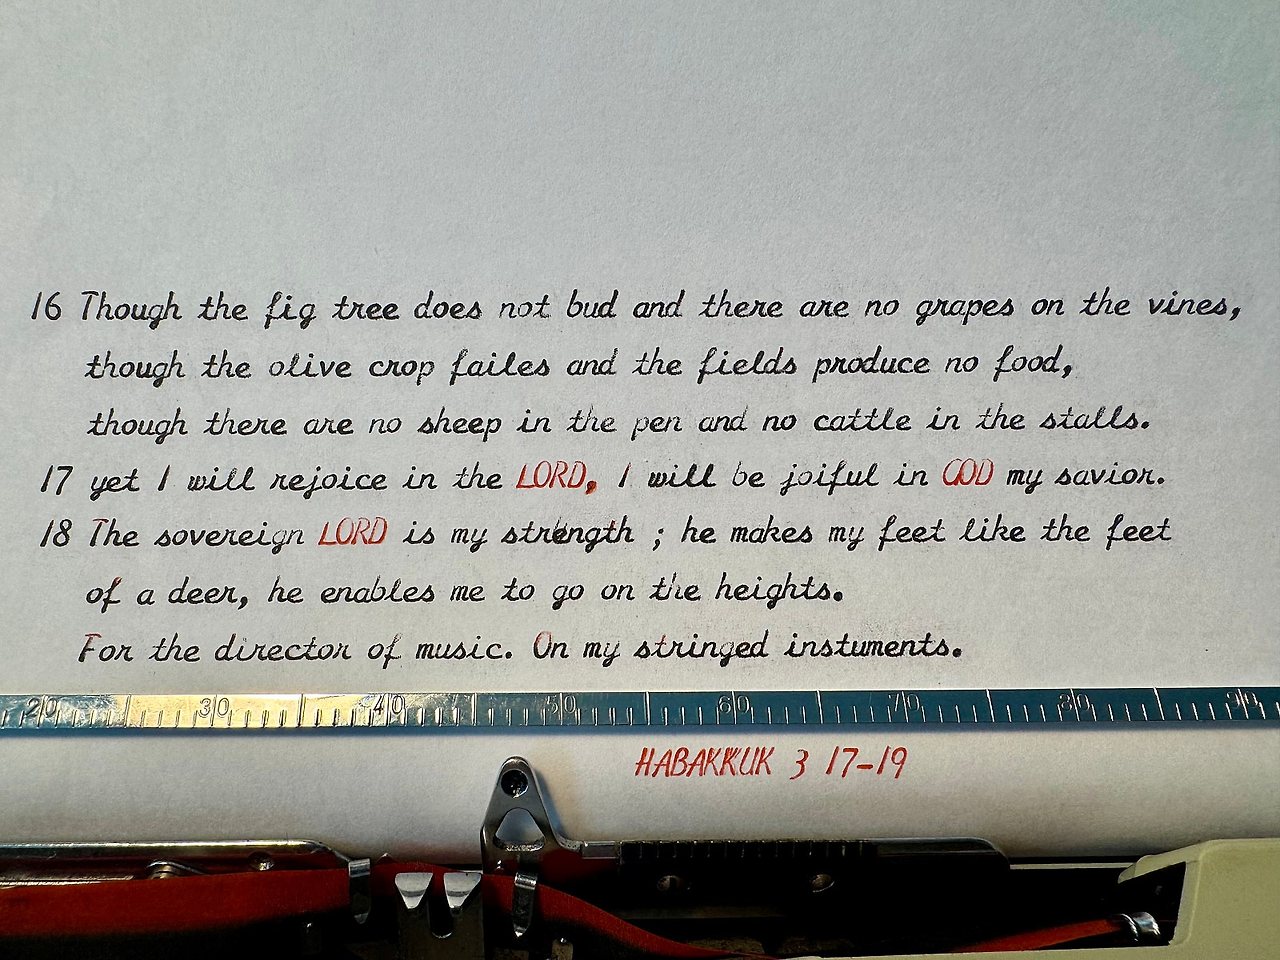 16 Though the fig tree does not bud and there are no grapes on the vines,
though the olive crop failes and the fields produce no food,
though there are no sheep in the pen and no cattle in the stalls.
17 yet I will rejoice in the LORD, I will be joiful in GOD my savior.
18 The sovereign LORD is my strength ; he makes my feet like the feet
of a deer, he enables me to go on the heights.
For the director of music. On my stringed instuments.
20 30 40 50 60 70 80 90
HABAKKUK 3 17-19